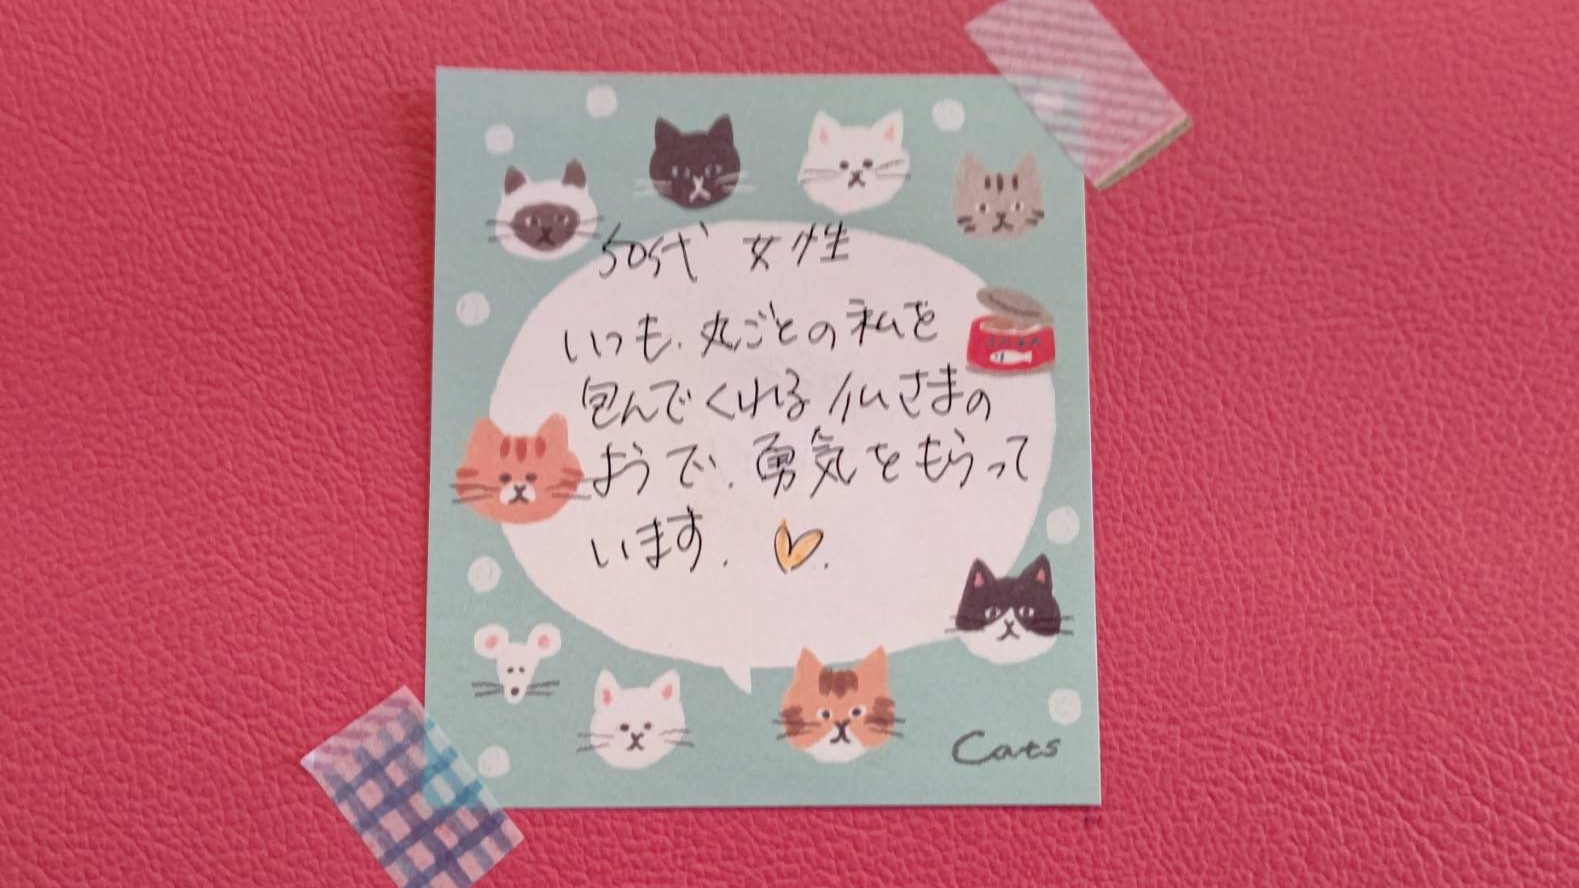 50代 女性
いつも、丸ごとの私を
包んでくれる仏さまの
ようで、勇気をもらって
います.
Cats